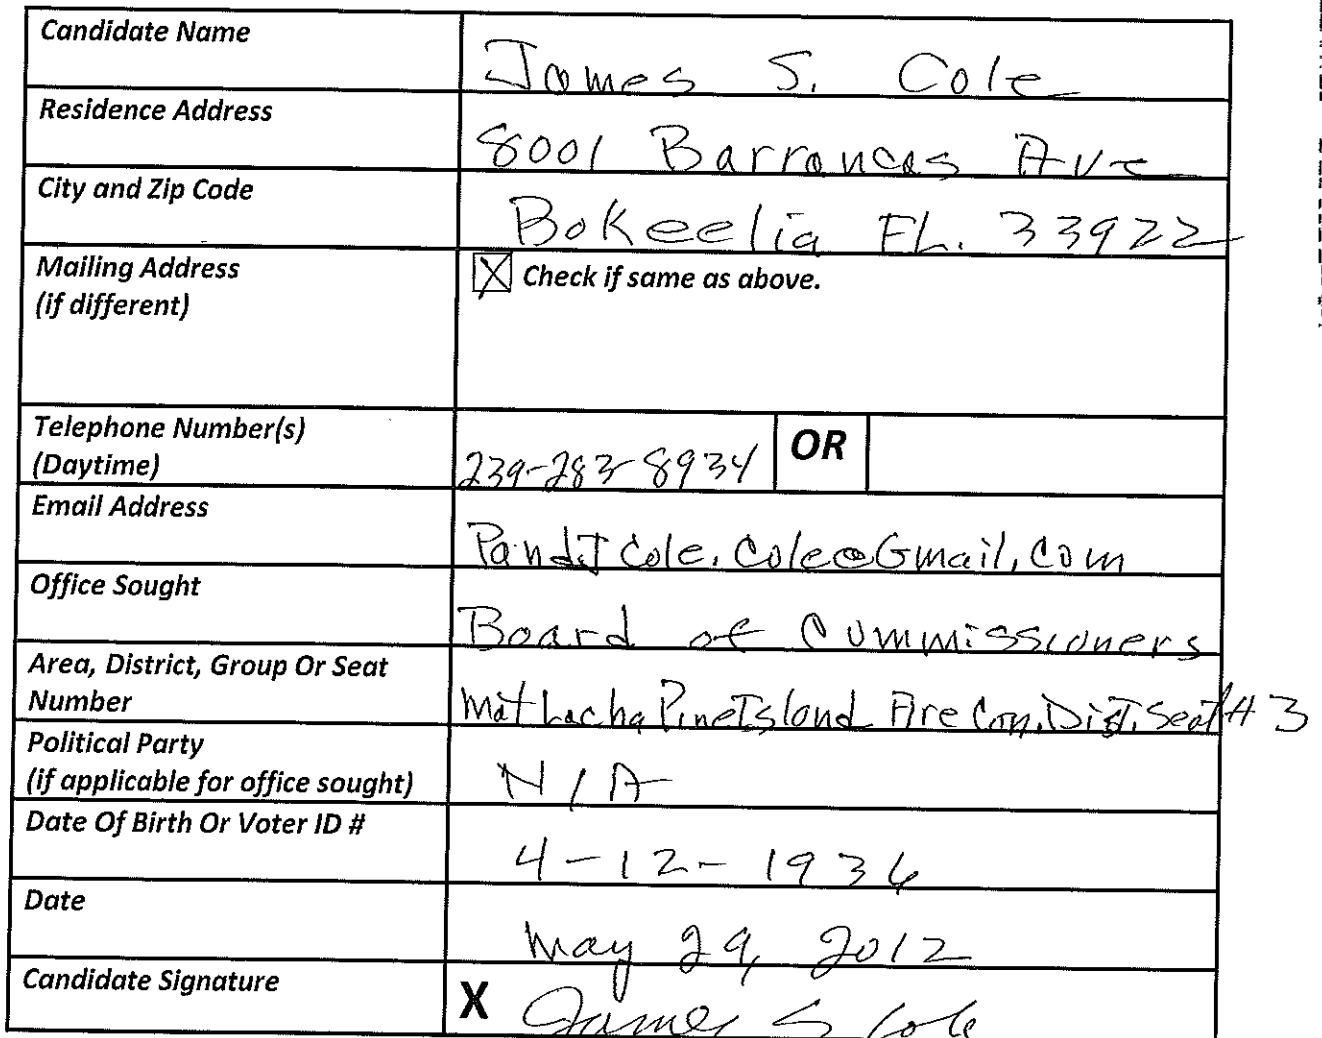 Candidate Name James S. Cole
Residence Address 8001 Barrancas Ave
City and Zip Code Bokeelia FL. 33922
Mailing Address
(if different) X Check if same as above.
Telephone Number(s)
(Daytime) 239-283-8934 OR
Email Address PandJCole.Cole@Gmail.Com
Office Sought Board of Commissioners
Area, District, Group Or Seat
Number Matlacha PineIsland Fire Con. Dist. Seat # 3
Political Party
(if applicable for office sought) N/A
Date Of Birth Or Voter ID # 4-12-1936
Date May 29, 2012
Candidate Signature X James S Cole